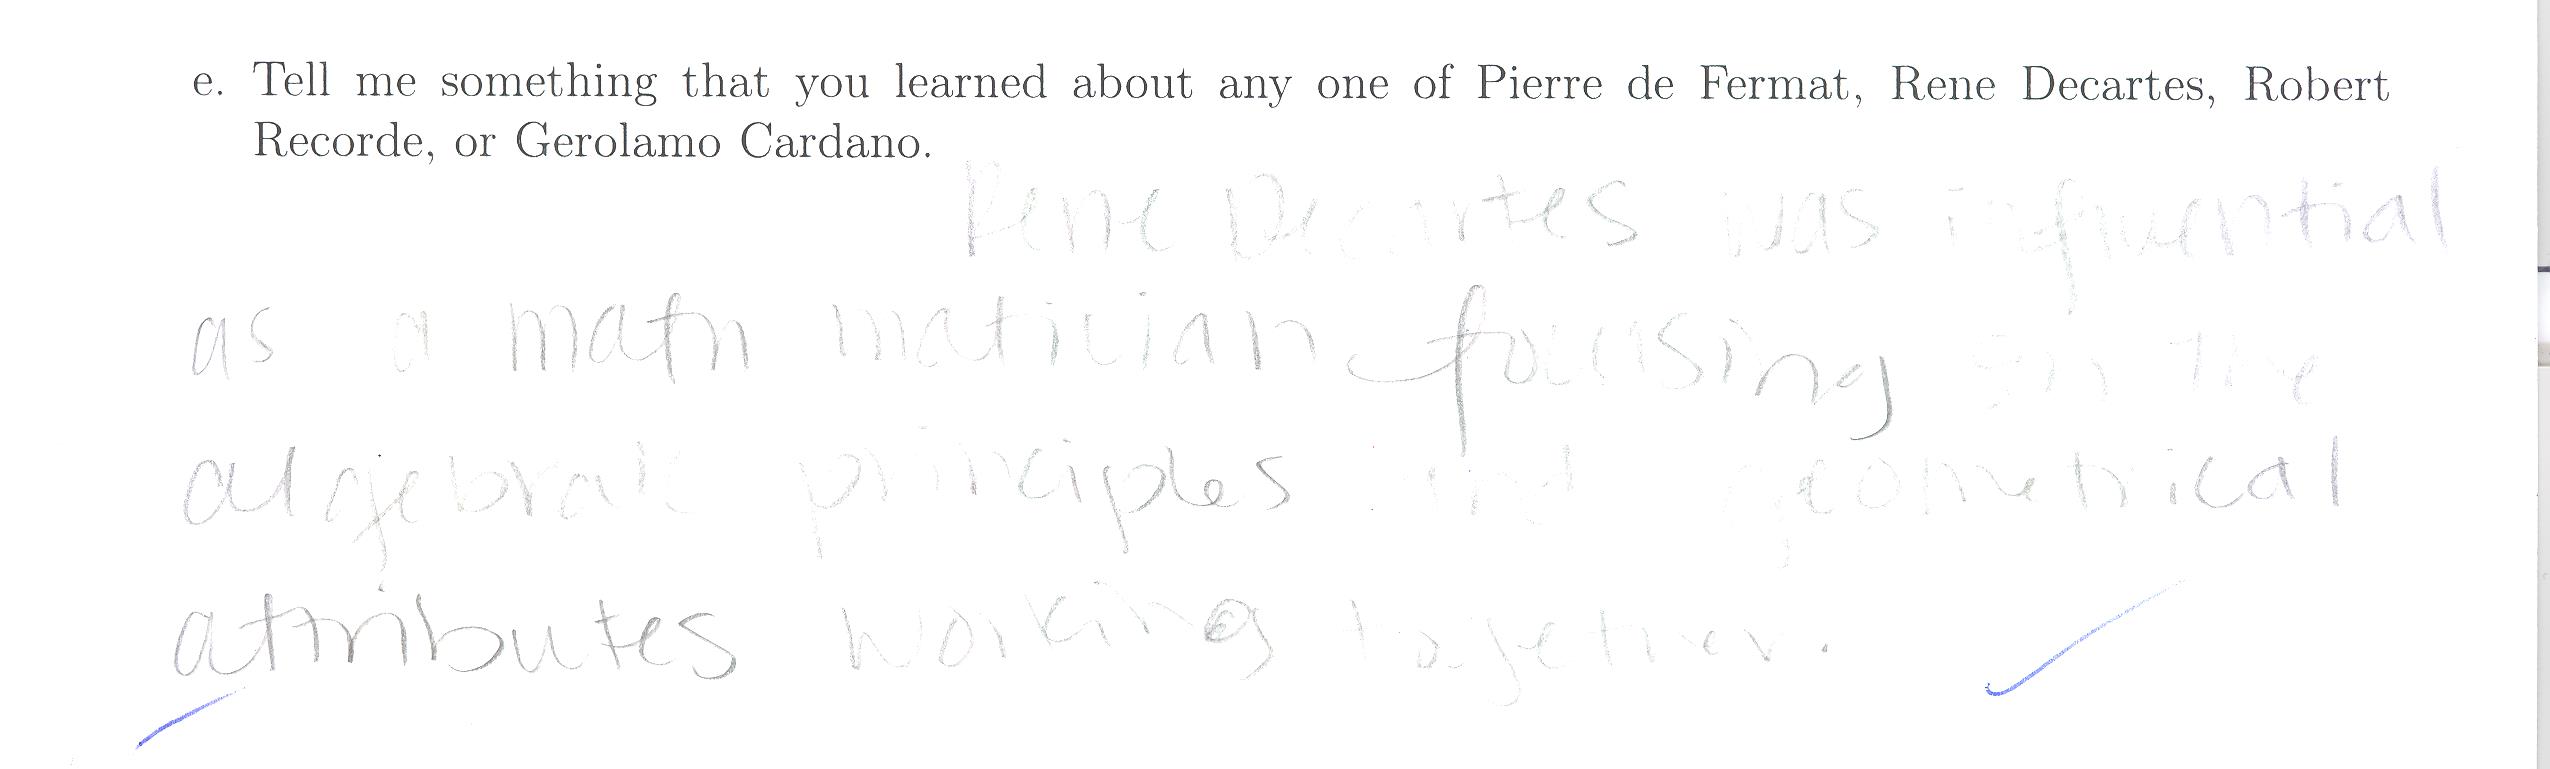 e. Tell me something that you learned about any one of Pierre de Fermat, Rene Decartes, Robert
Recorde, or Gerolamo Cardano.
Rene Decartes was influential
as a mathmatician focusing on the
algebraic principles and geometrical
attributes working together.